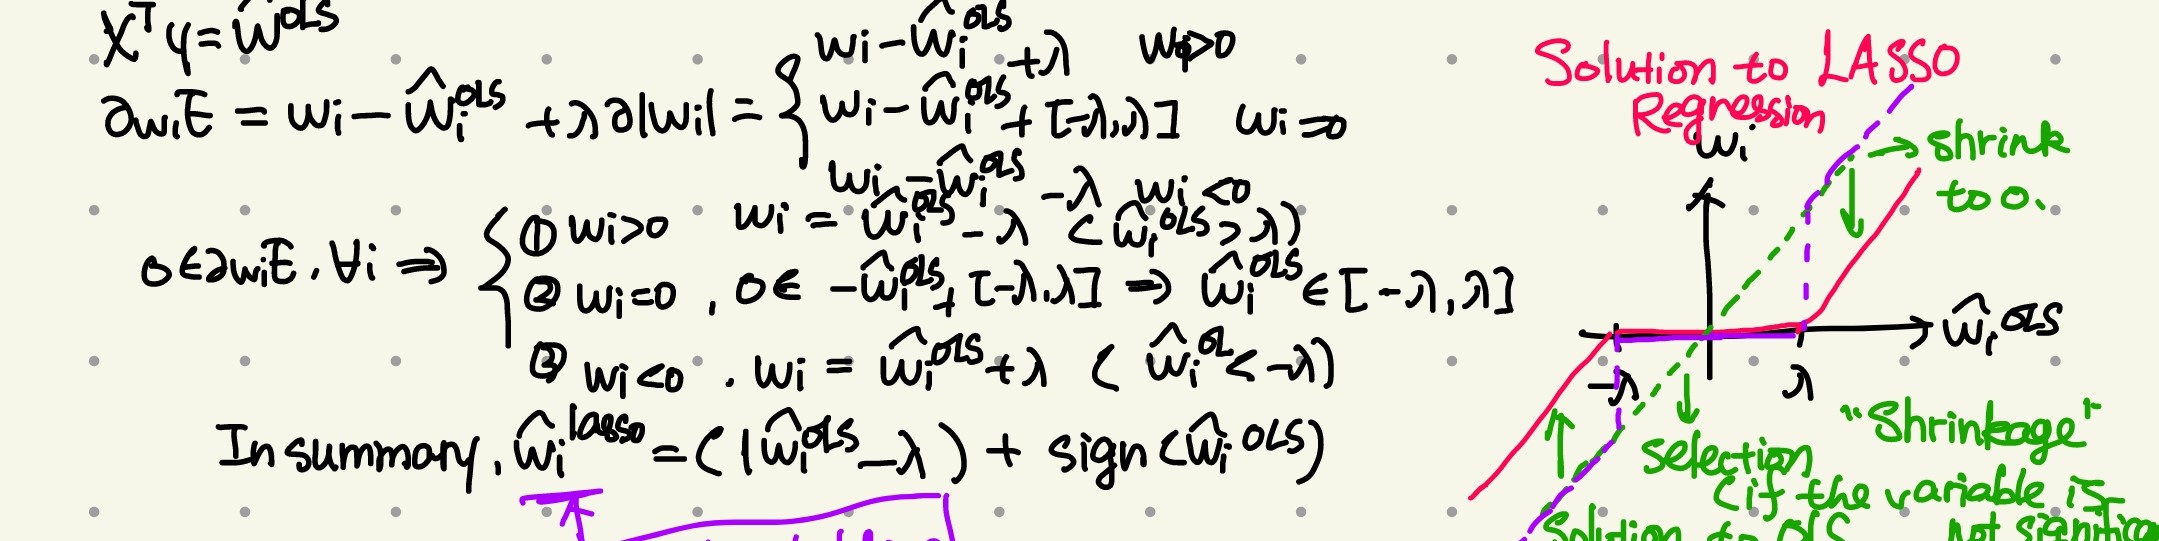 X^T y = ŵ^OLS
∂wiE = wi − ŵi^OLS + λ∂|wi| = { wi − ŵi^OLS + λ   wi>0
wi − ŵi^OLS + [−λ,λ]   wi=0
wi − ŵi^OLS − λ   wi<0
0∈∂wiE, ∀i ⇒ { ① wi>0   wi = ŵi^OLS − λ (ŵi^OLS > λ)
② wi=0, 0∈ −ŵi^OLS + [−λ,λ] ⇒ ŵi^OLS ∈ [−λ,λ]
③ wi<0. wi = ŵi^OLS + λ ( ŵi^OL < −λ)
In summary, ŵi^lasso = (|ŵi^OLS − λ)+ sign(ŵi^OLS)
Solution to LASSO
Regression
wi
→ shrink
to 0.
ŵi^OLS
−λ
λ
"Shrinkage"
selection
(if the variable is
not
Solution to OLS